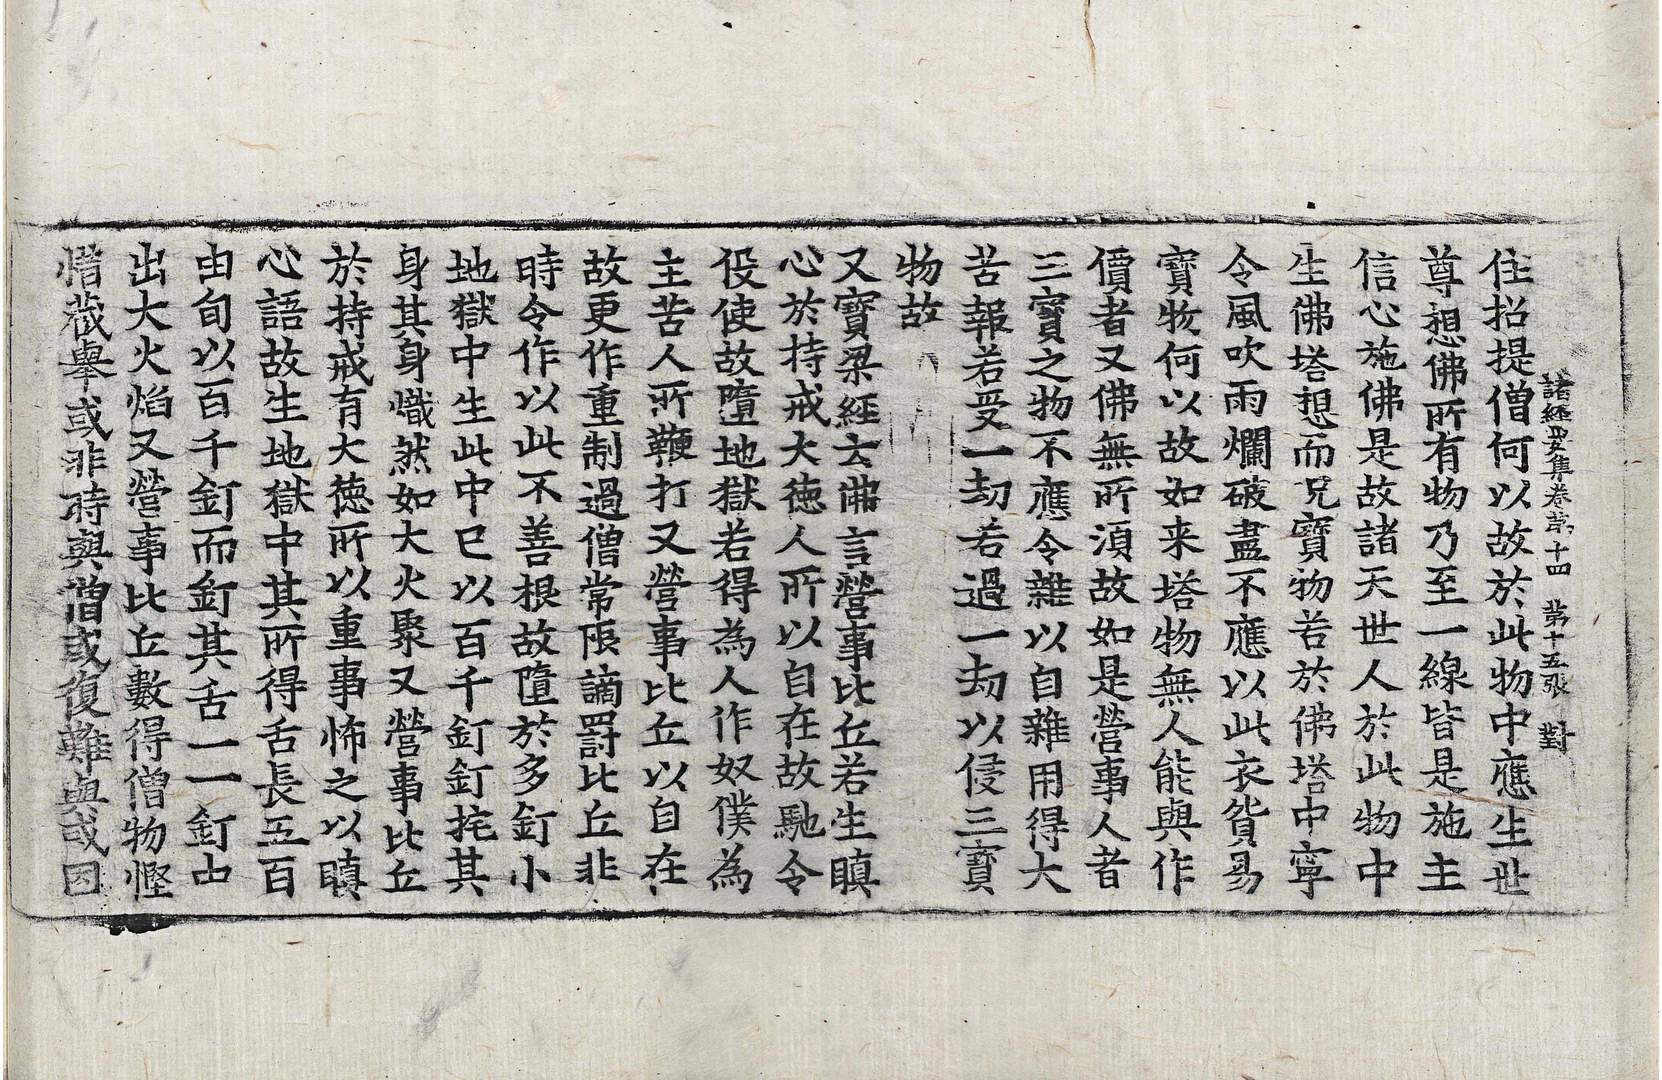 諸經要集卷第十四　第十五張　對
住招提僧何以故於此物中應生世
尊想佛所有物乃至一線皆是施主
信心施佛是故諸天世人於此物中
生佛塔想而况寶物若於佛塔中寧
令風吹雨爛破盡不應以此衣貨易
寶物何以故如来塔物無人能與作
價者又佛無所湏故如是營事人者
三寶之物不應令雜以自雜用得大
苦報若受一劫若過一劫以侵三寶
物故
又寶梁經云佛言營事比丘若生瞋
心於持戒大徳人所以自在故馳令
役使故墮地獄若得為人作奴僕為
主苦人所鞭打又營事比丘以自在
故更作重制過僧常限謫罸比丘非
時令作以此不善根故墮於多釘小
地獄中生此中已以百千釘釘挓其
身其身熾然如大火聚又營事比丘
於持戒有大徳所以重事怖之以瞋
心語故生地獄中其所得舌長五百
由旬以百千釘而釘其舌一一釘中
出大火焰又營事比丘數得僧物慳
惜藏舉或非時與僧或復難與或因